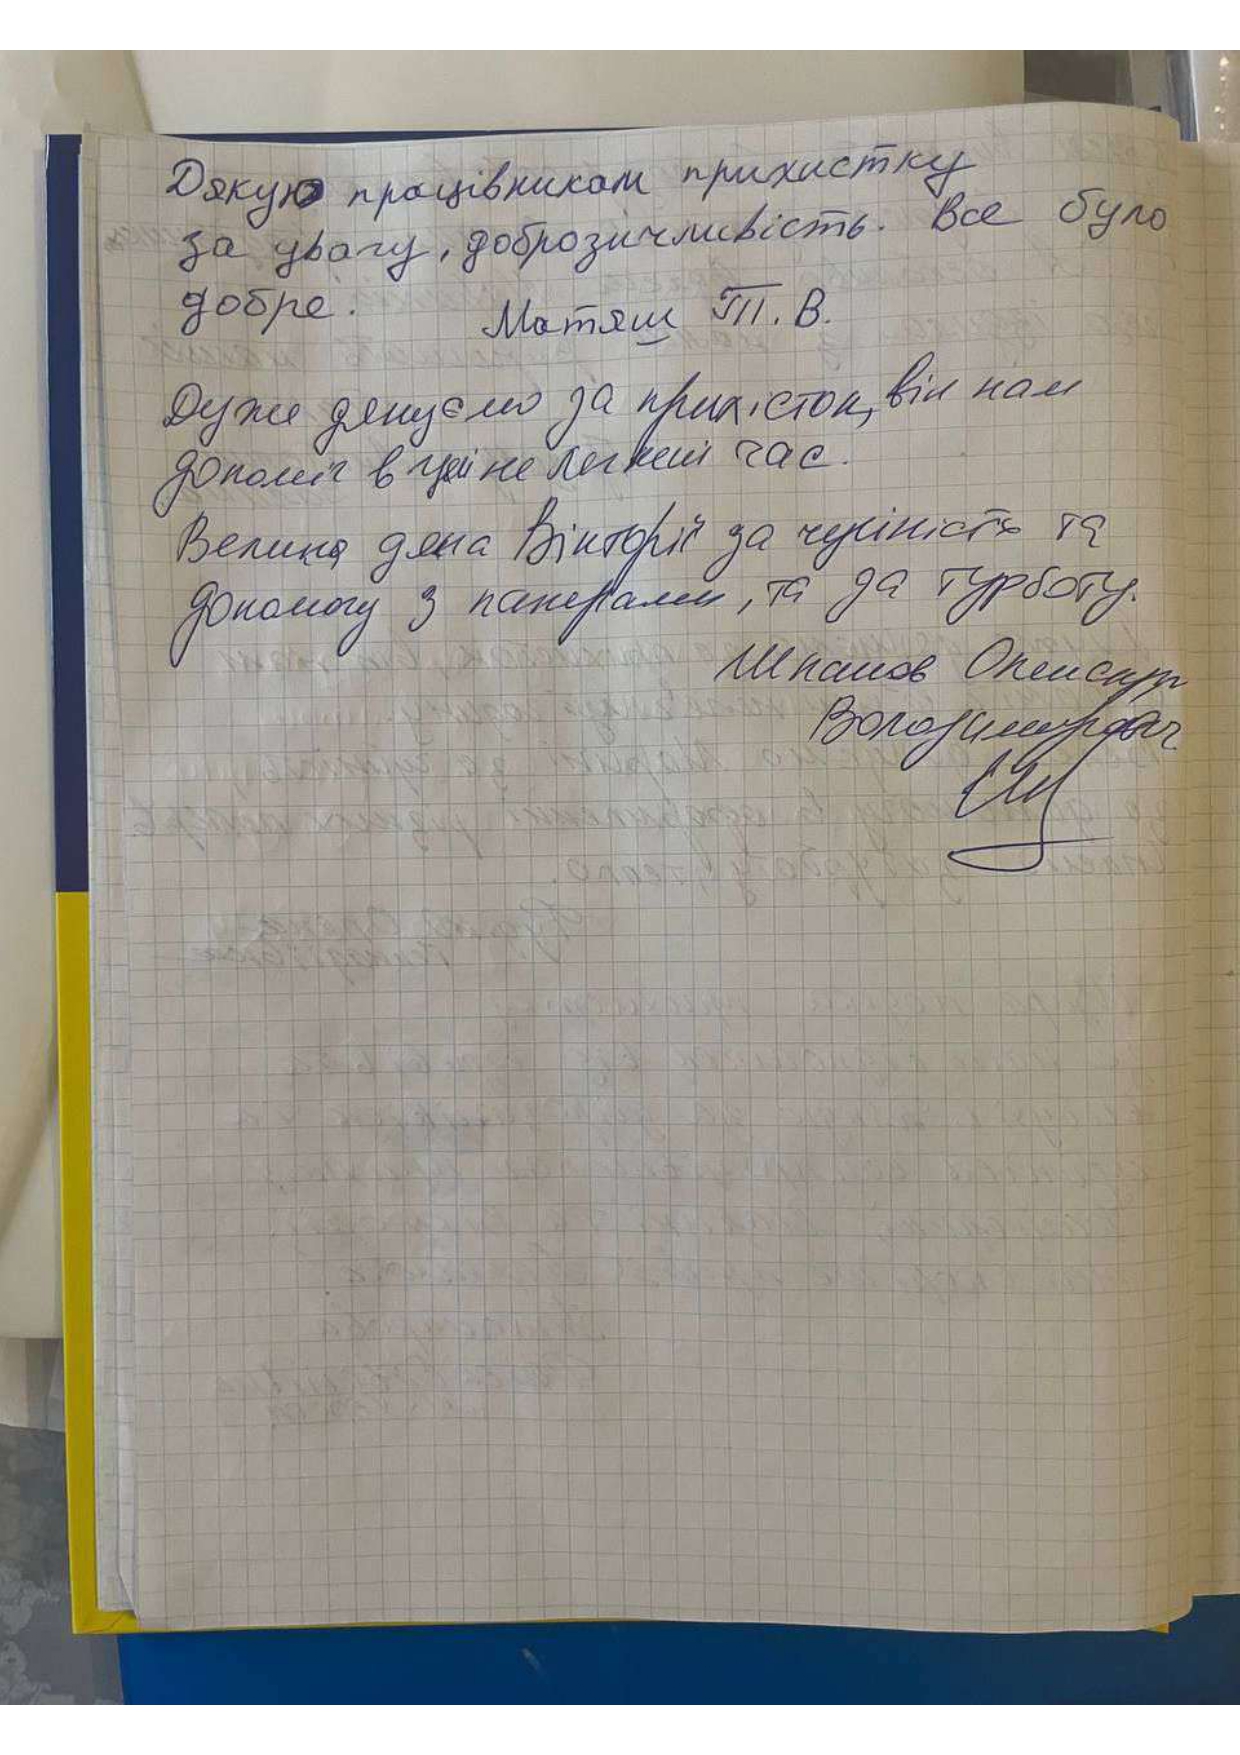 Дякую працівникам прихистку
за увагу, доброзичливість. Все було
добре.
Матяш Т. В.
Дуже дякуємо за прихісток, він нам
допоміг в цей не легкий час.
Велика дяка Вікторії за чуйність та
допомогу з паперами, та за турботу.
Шпаков Олександр
Володимирович